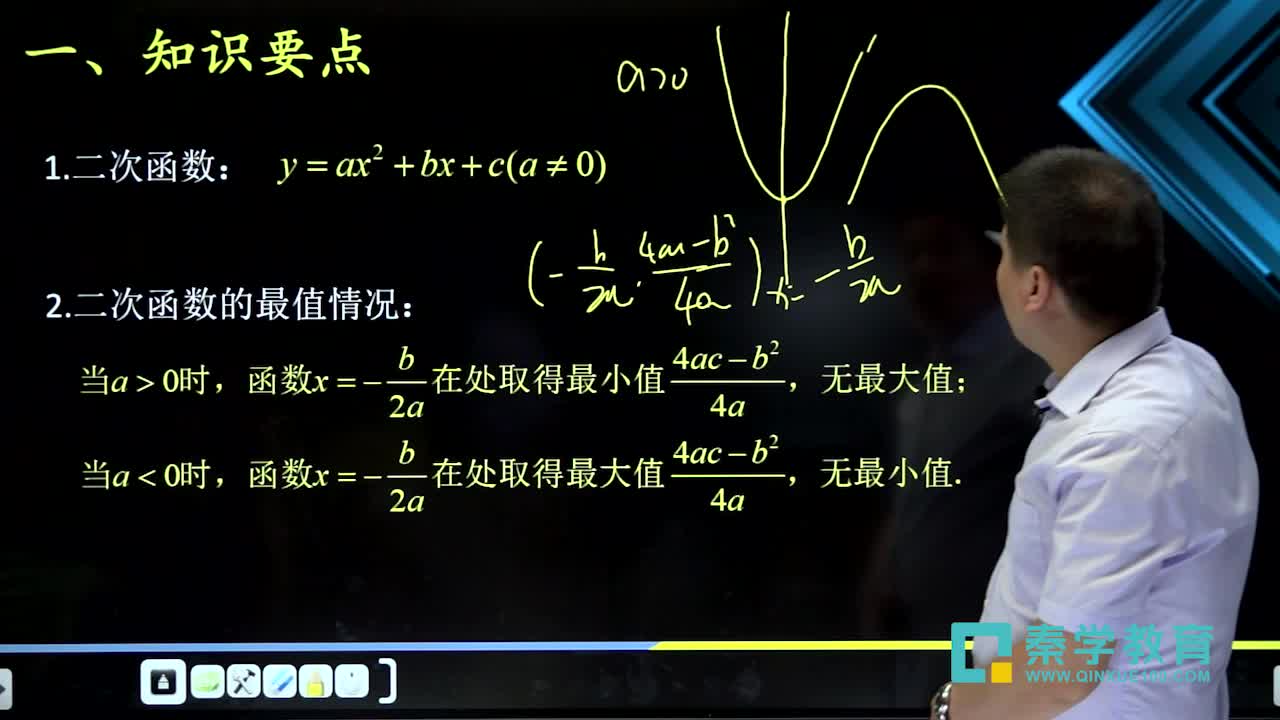 一、知识要点
a>0
1.二次函数： y=ax²+bx+c(a≠0)
(-b/2a, 4ac-b²/4a) x=-b/2a
2.二次函数的最值情况：
当a>0时，函数x=-b/2a在处取得最小值4ac-b²/4a，无最大值；
当a<0时，函数x=-b/2a在处取得最大值4ac-b²/4a，无最小值.
秦学教育
WWW.QINXUE100.COM